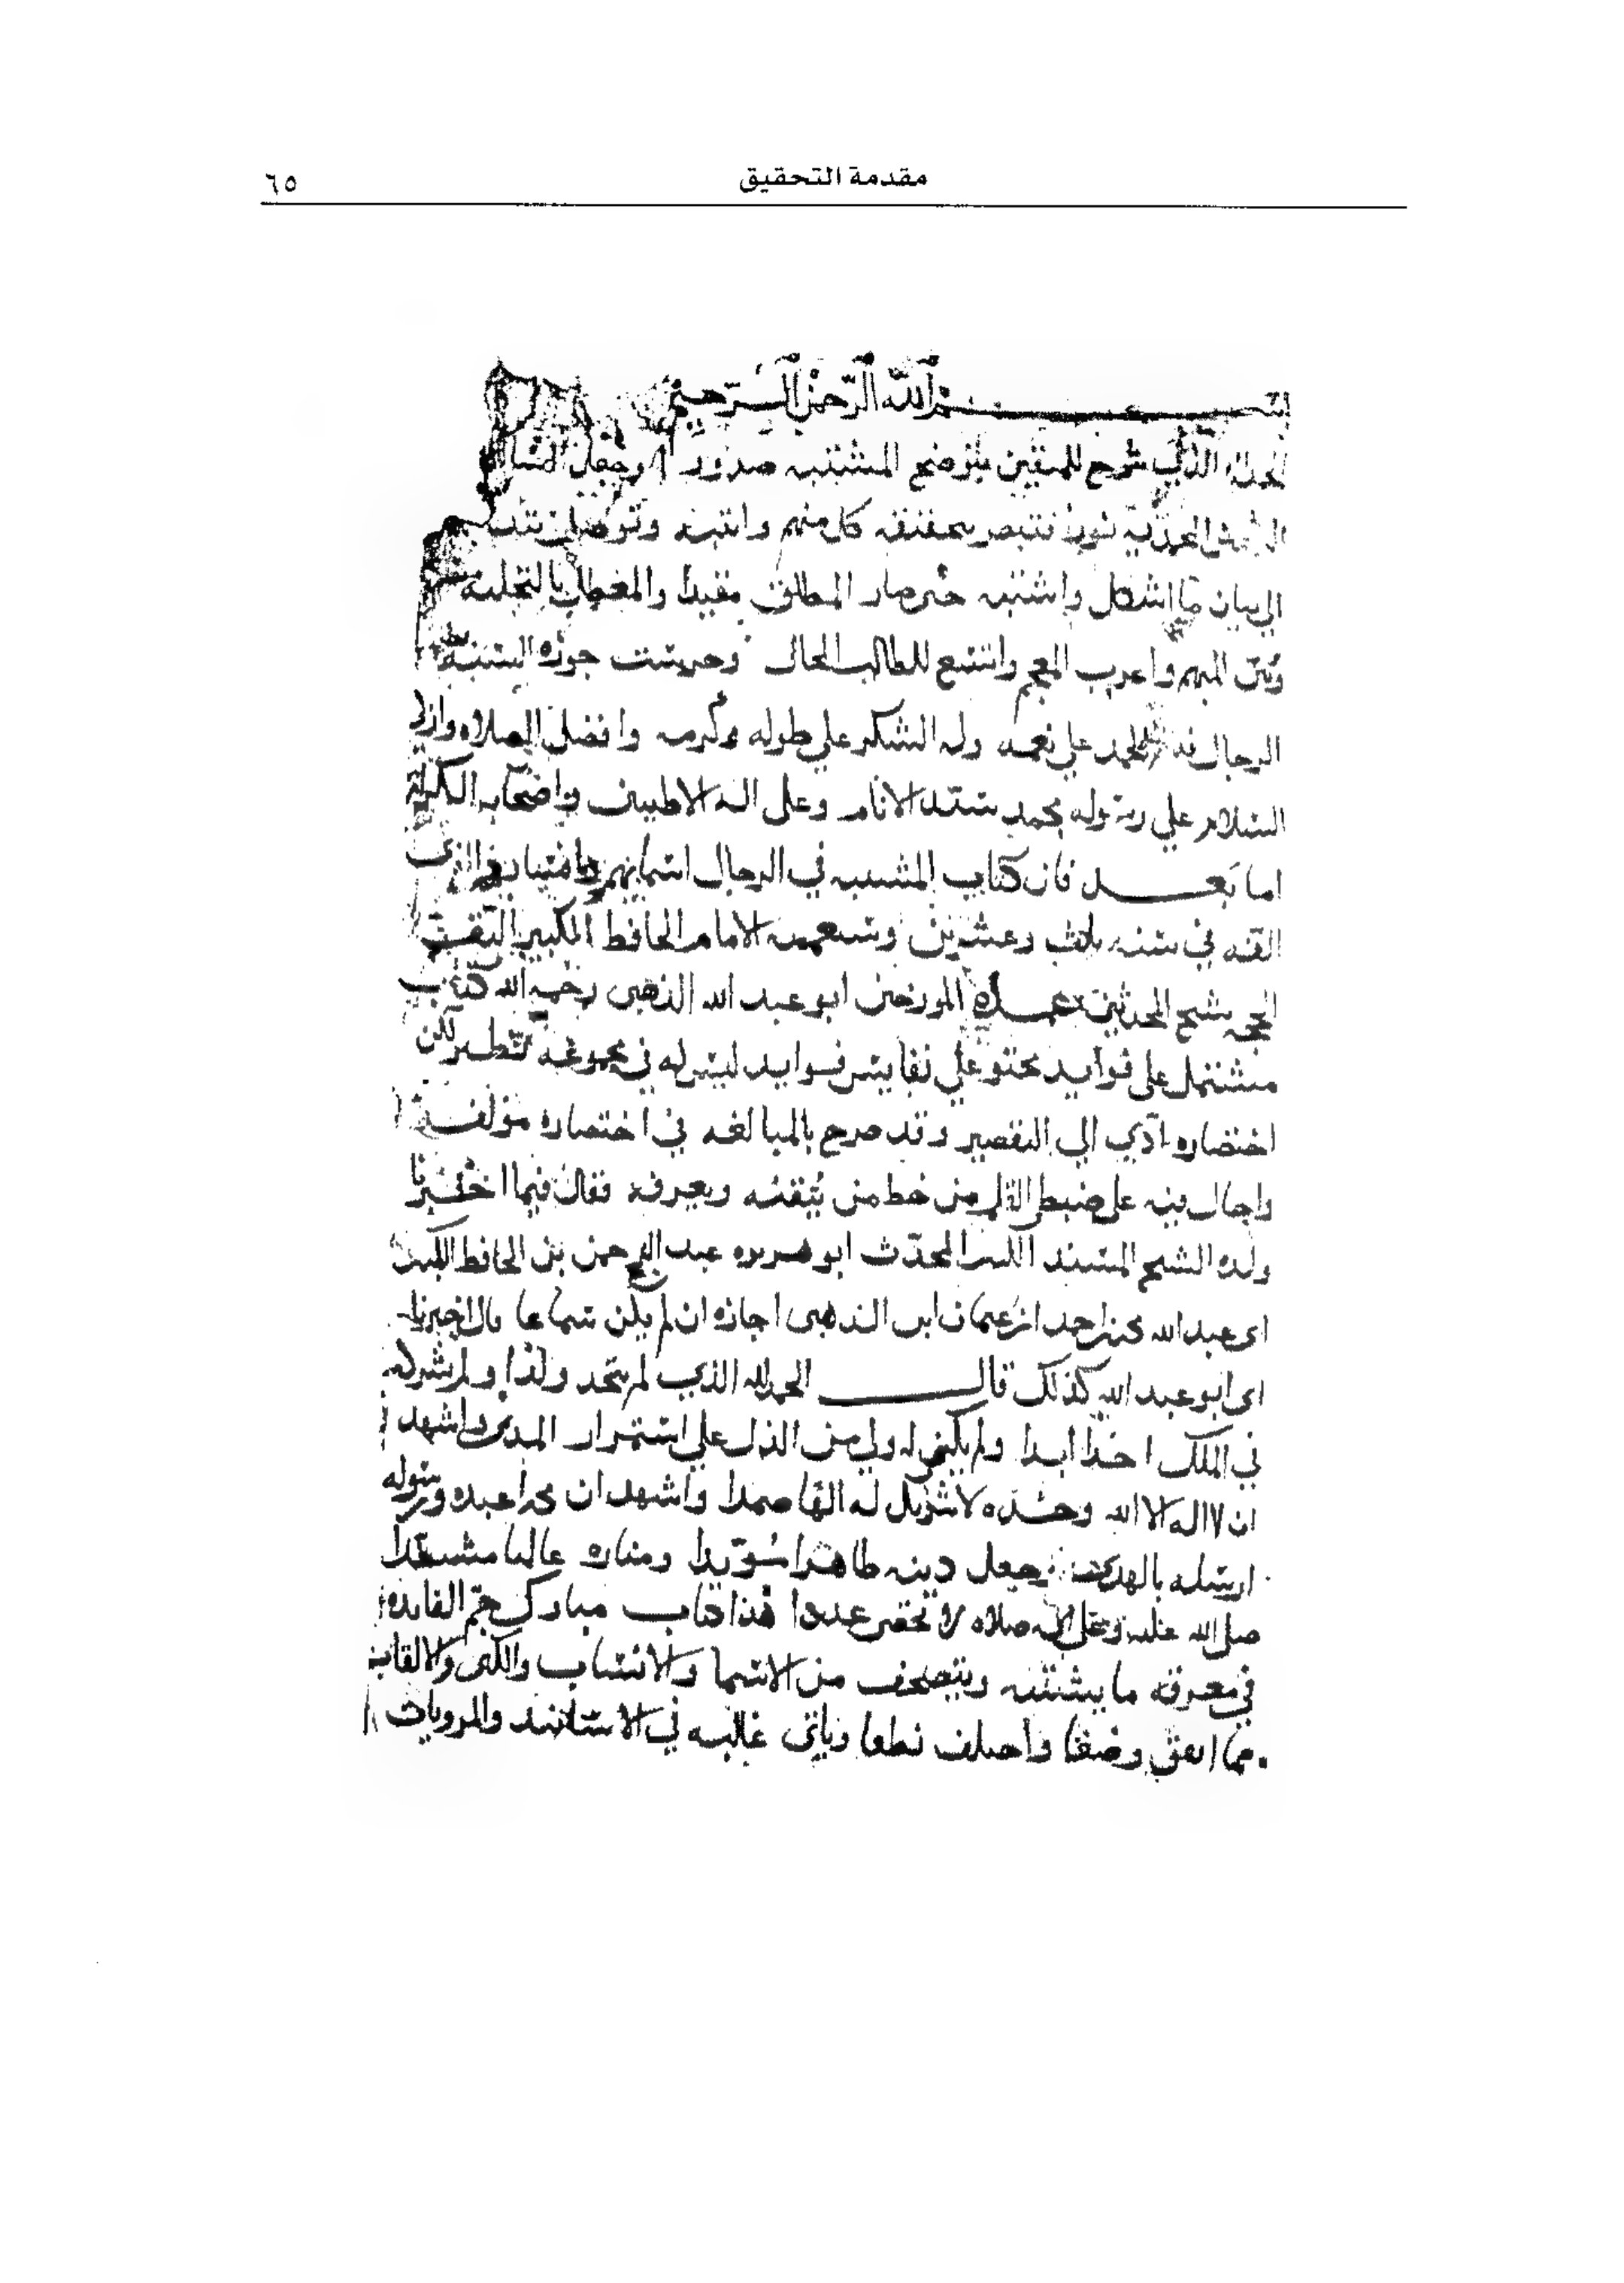 مقدمة التحقيق ٦٥
بسم الله الرحمن الرحيم
الحمد لله الذي شرح للمتقين بتوضيح المشتبه صدورا وجعل
نورا فتبصر كل منهم وانتبه وتوصل
الى بيان ما اشكل واشتبه حتى صار المطلق مقيدا والمعطل بالتحلية
وتبين المبهم واعرب المعجم واتسع للطالب المجال وحرست حوزة السنة
الرجال فله الحمد على نعمه وله الشكر على طوله وكرمه وافضل الصلاه وازكى
السلام على رسوله محمد سيد الانام وعلى اله الاطيبين واصحابه الكرام
اما بعد فان كتاب المشتبه في الرجال اسمايهم وانسابهم الذي
الفه في سنه ثلث وعشرين وسبعمه الامام الحافظ الكبير الثقة
الحجه شيخ المحدثين عمده المورخين ابو عبد الله الذهبي رحمه الله كتاب
مشتمل على فوايد محتو على نفايس فرايد ليس له في مجموعه نظير لكن
اختصاره ادي الي التقصير وقد صرح بالمبالغه في اختصاره مؤلفه
واحال فيه على ضبط القلم من خط من يتقنه ويعرفه فقال فيما اخبرنا
ولده الشيخ المسند الكبير المحدث ابو هريره عبد الرحمن بن الحافظ الكبير
ابي عبد الله محمد بن احمد بن عثمان ابن الذهبي اجازه ان لم يكن سماعا قال اخبرنا
ابي ابو عبد الله كذلك قال الحمد لله الذي لم يتخذ ولدا ولم يشرك
في الملك احدا ابدا ولم يكن له ولي من الذل على استمرار المدى واشهد
ان لا اله الا الله وحده لا شريك له الها صمدا واشهد ان محمدا عبده ورسوله
ارسله بالهدى وجعل دينه طاهرا مؤيدا ومناره عاليا مشيدا
صلى الله عليه وعلى اله صلاه لا تحصر عددا هذا كتاب مبارك جم الفايده
في معرفه ما يشتبه ويتصحف من الاسما والانساب والكنى والالقاب
مما اتفق وضعا واختلف نطقا وياتي غالبه في الاسانيد والمرويات